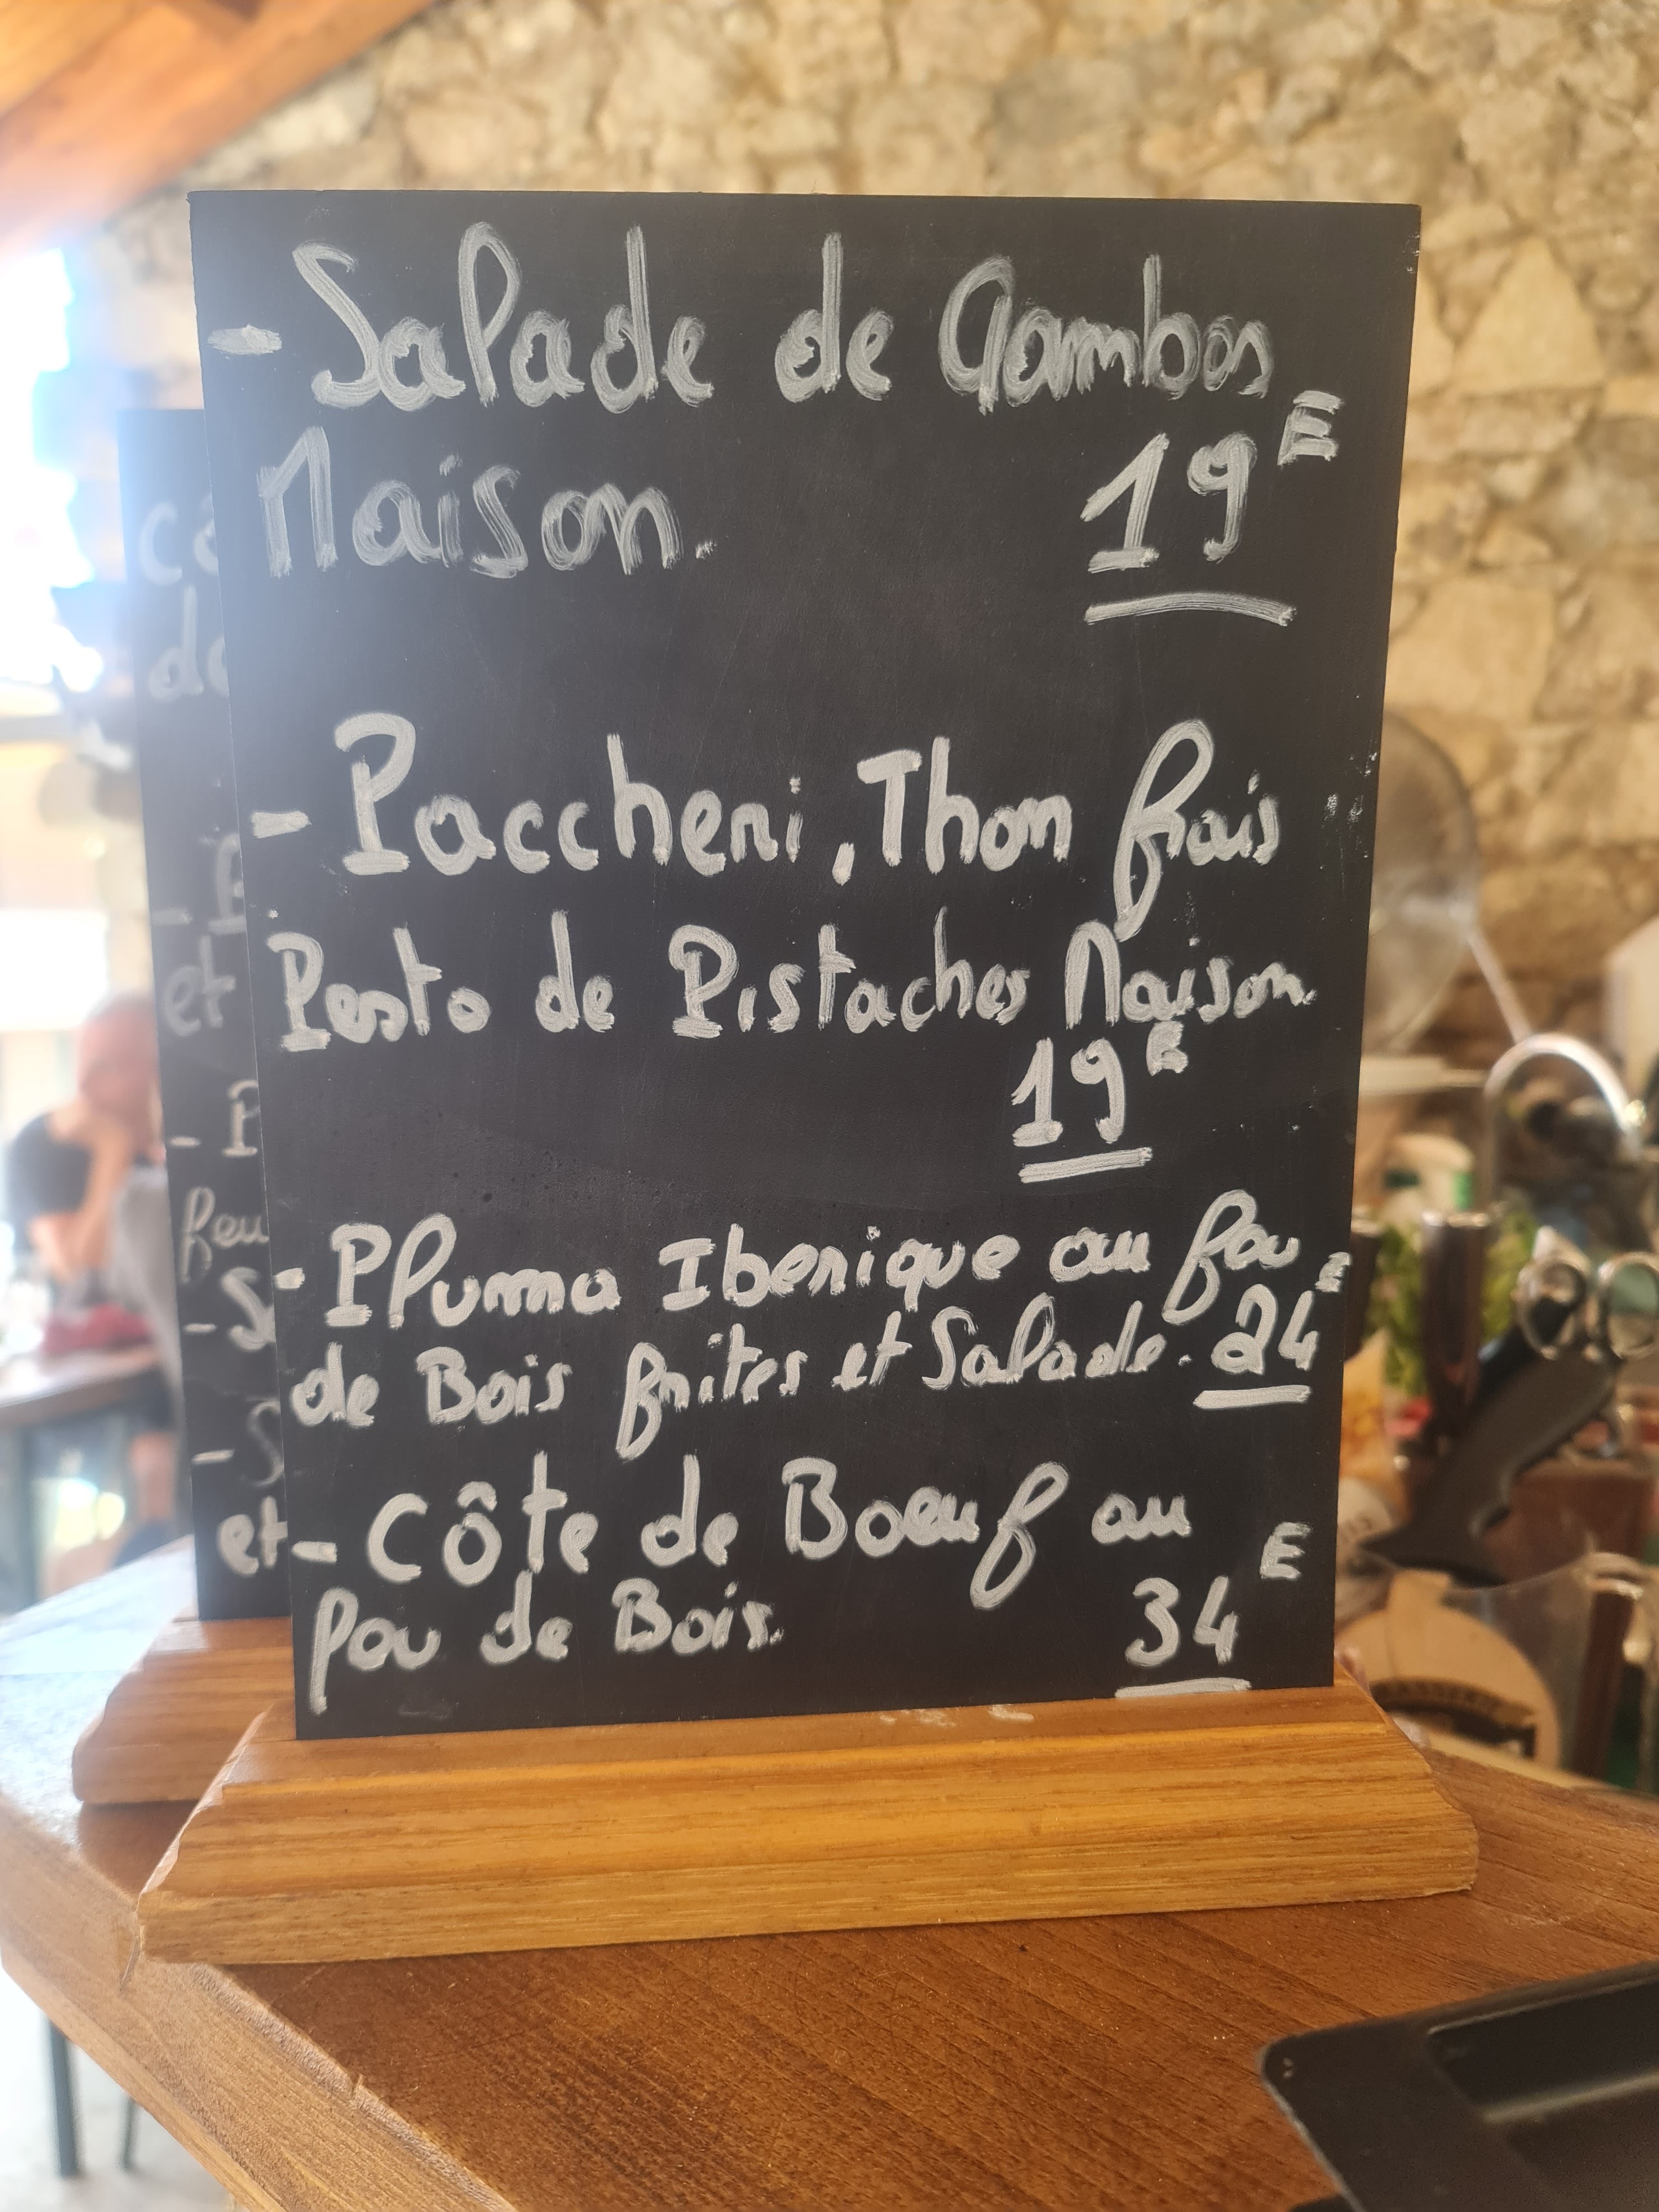 - Salade de Gambas
Maison. 19E
- Paccheri, Thon frais
Pesto de Pistaches Maison.
19E
- Pluma Iberique au fou
de Bois frites et Salade. 24E
- Côte de Boeuf au
fou de Bois. 34E
Cô
de
et
- P
feu
- S
- S
et